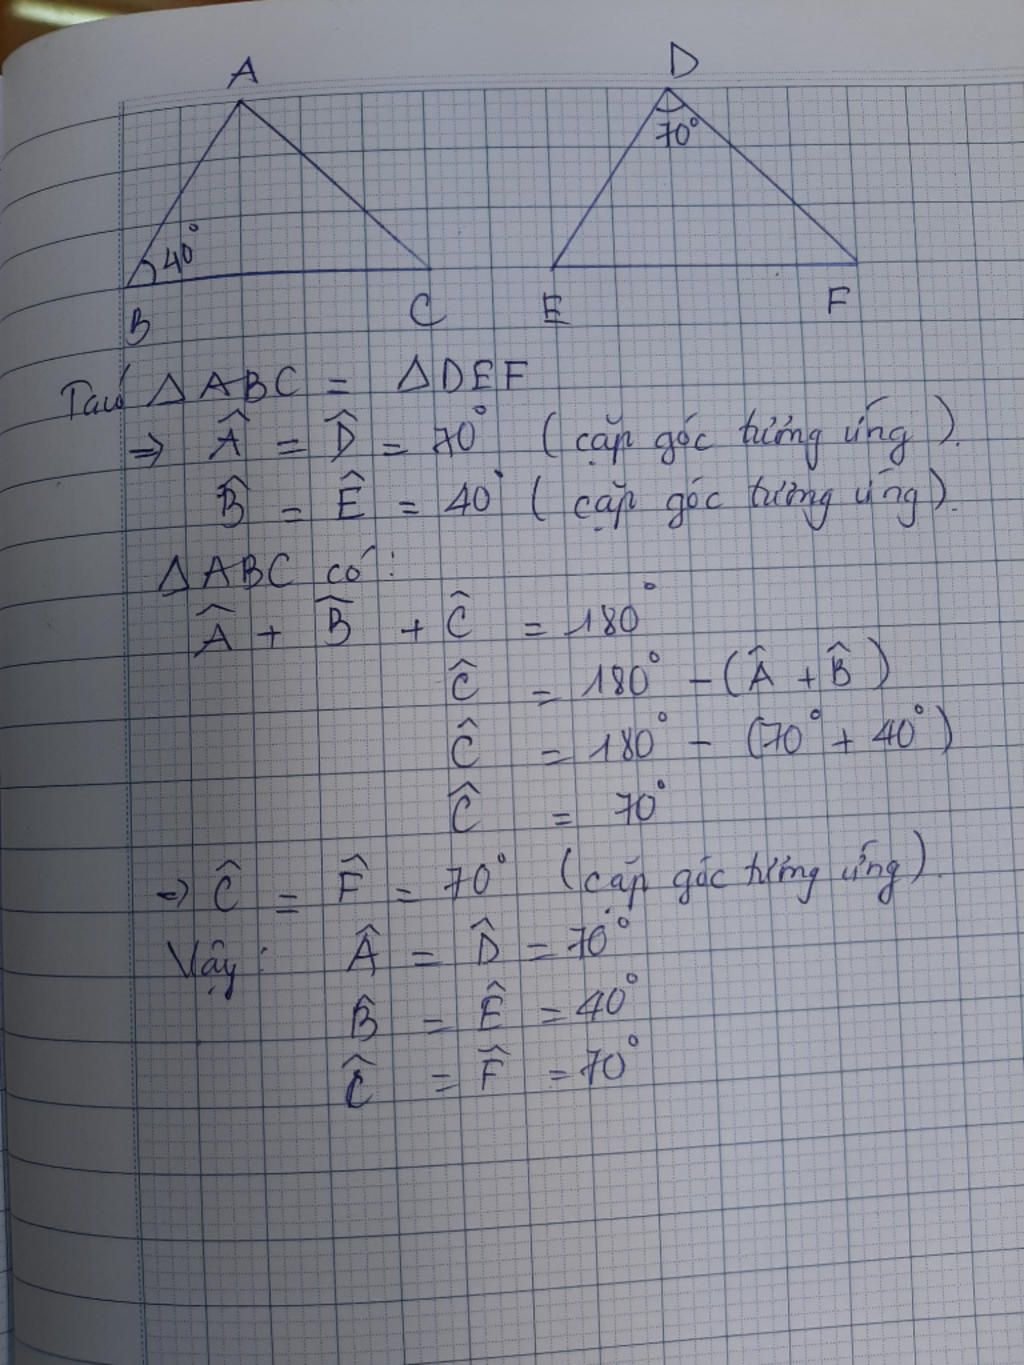 A
D
70°
40°
B
C
E
F
Ta có △ABC = △DEF
=> Â = D̂ = 70° (cặp góc tương ứng).
B̂ = Ê = 40° (cặp góc tương ứng).
△ABC có:
Â + B̂ + Ĉ = 180°
Ĉ = 180° - (Â + B̂)
Ĉ = 180° - (70° + 40°)
Ĉ = 70°
=> Ĉ = F̂ = 70° (cặp góc tương ứng).
Vậy: Â = D̂ = 70°
B̂ = Ê = 40°
Ĉ = F̂ = 70°